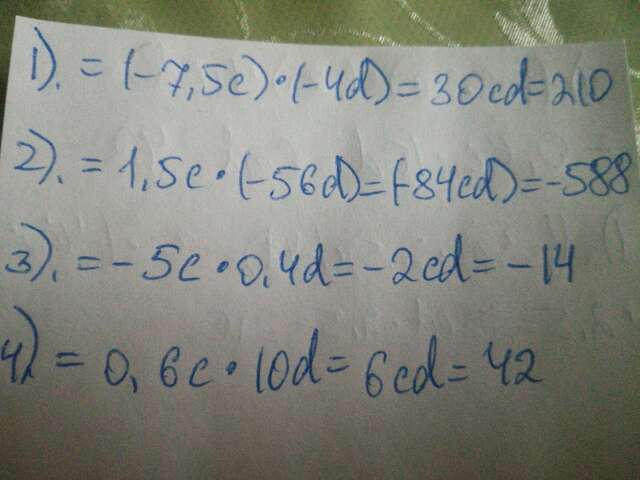 1). = (-7,5c)·(-4d)=30cd=210
2). = 1,5c·(-56d)=(-84cd)=-588
3). = -5c·0,4d=-2cd=-14
4) = 0,6c·10d=6cd=42